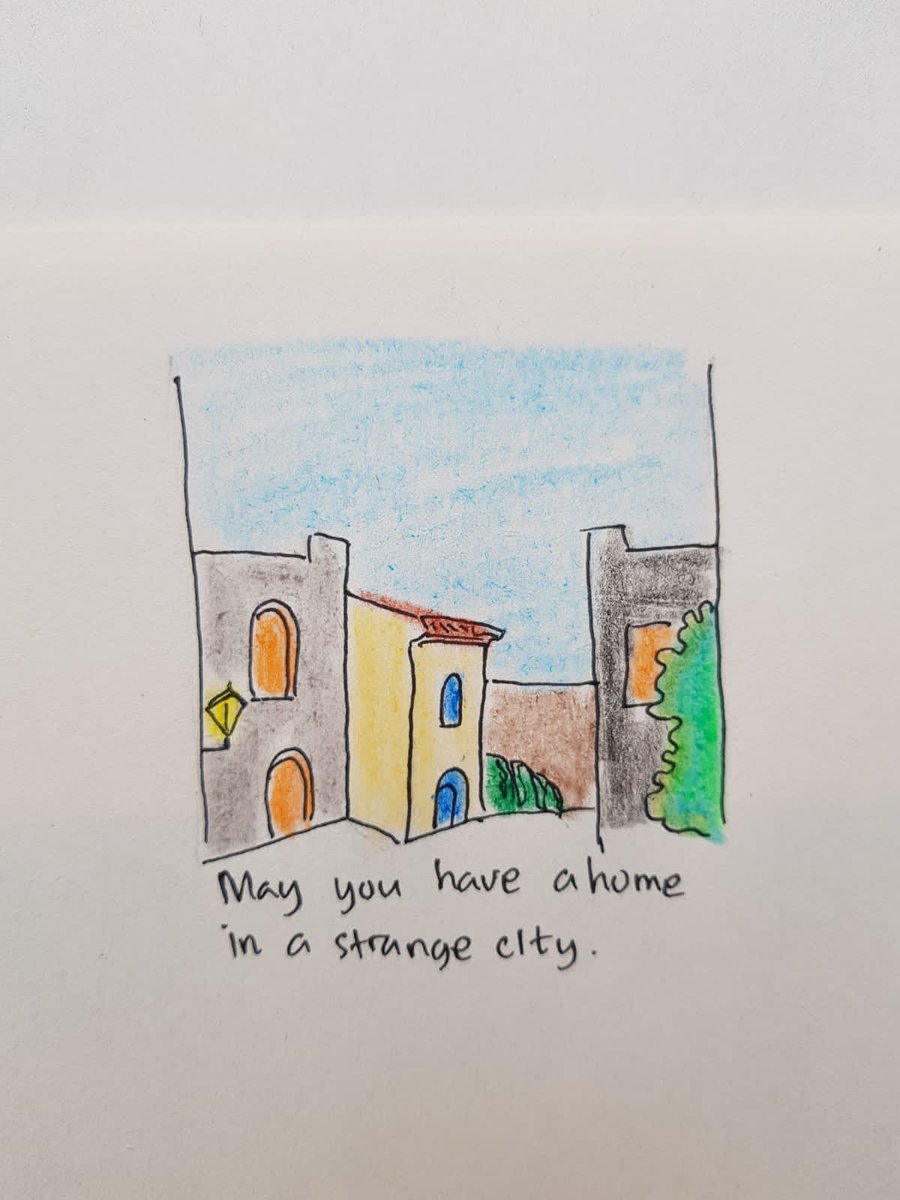 May you have a home
in a strange city.